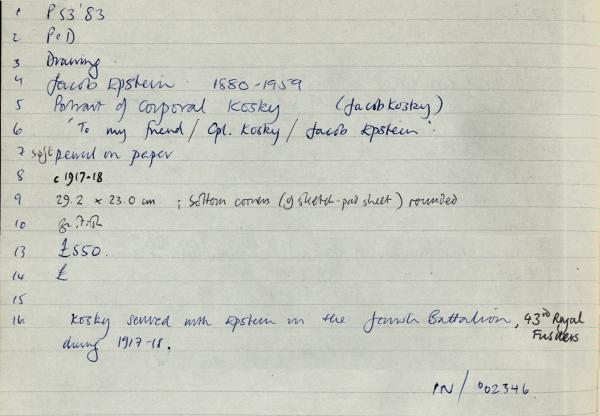 1 P53'83
2 P&D
3 Drawing
4 Jacob Epstein 1880-1959
5 Portrait of Corporal Kosky (Jacob Kosky)
6 'To my friend / Cpl. Kosky / Jacob Epstein'.
7 soft pencil on paper
8 c 1917-18
9 29.2 x 23.0 cm ; bottom corners (of sketch-pad sheet) rounded
10
13 £550.
14 £
15
16 Kosky served with Epstein in the Jewish Battalion, 43rd Royal Fusiliers
during 1917-18.
IN/002346